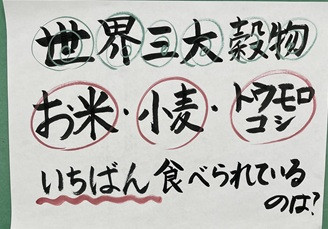 世界三大穀物
お米・小麦・トウモロコシ
いちばん食べられている
のは?